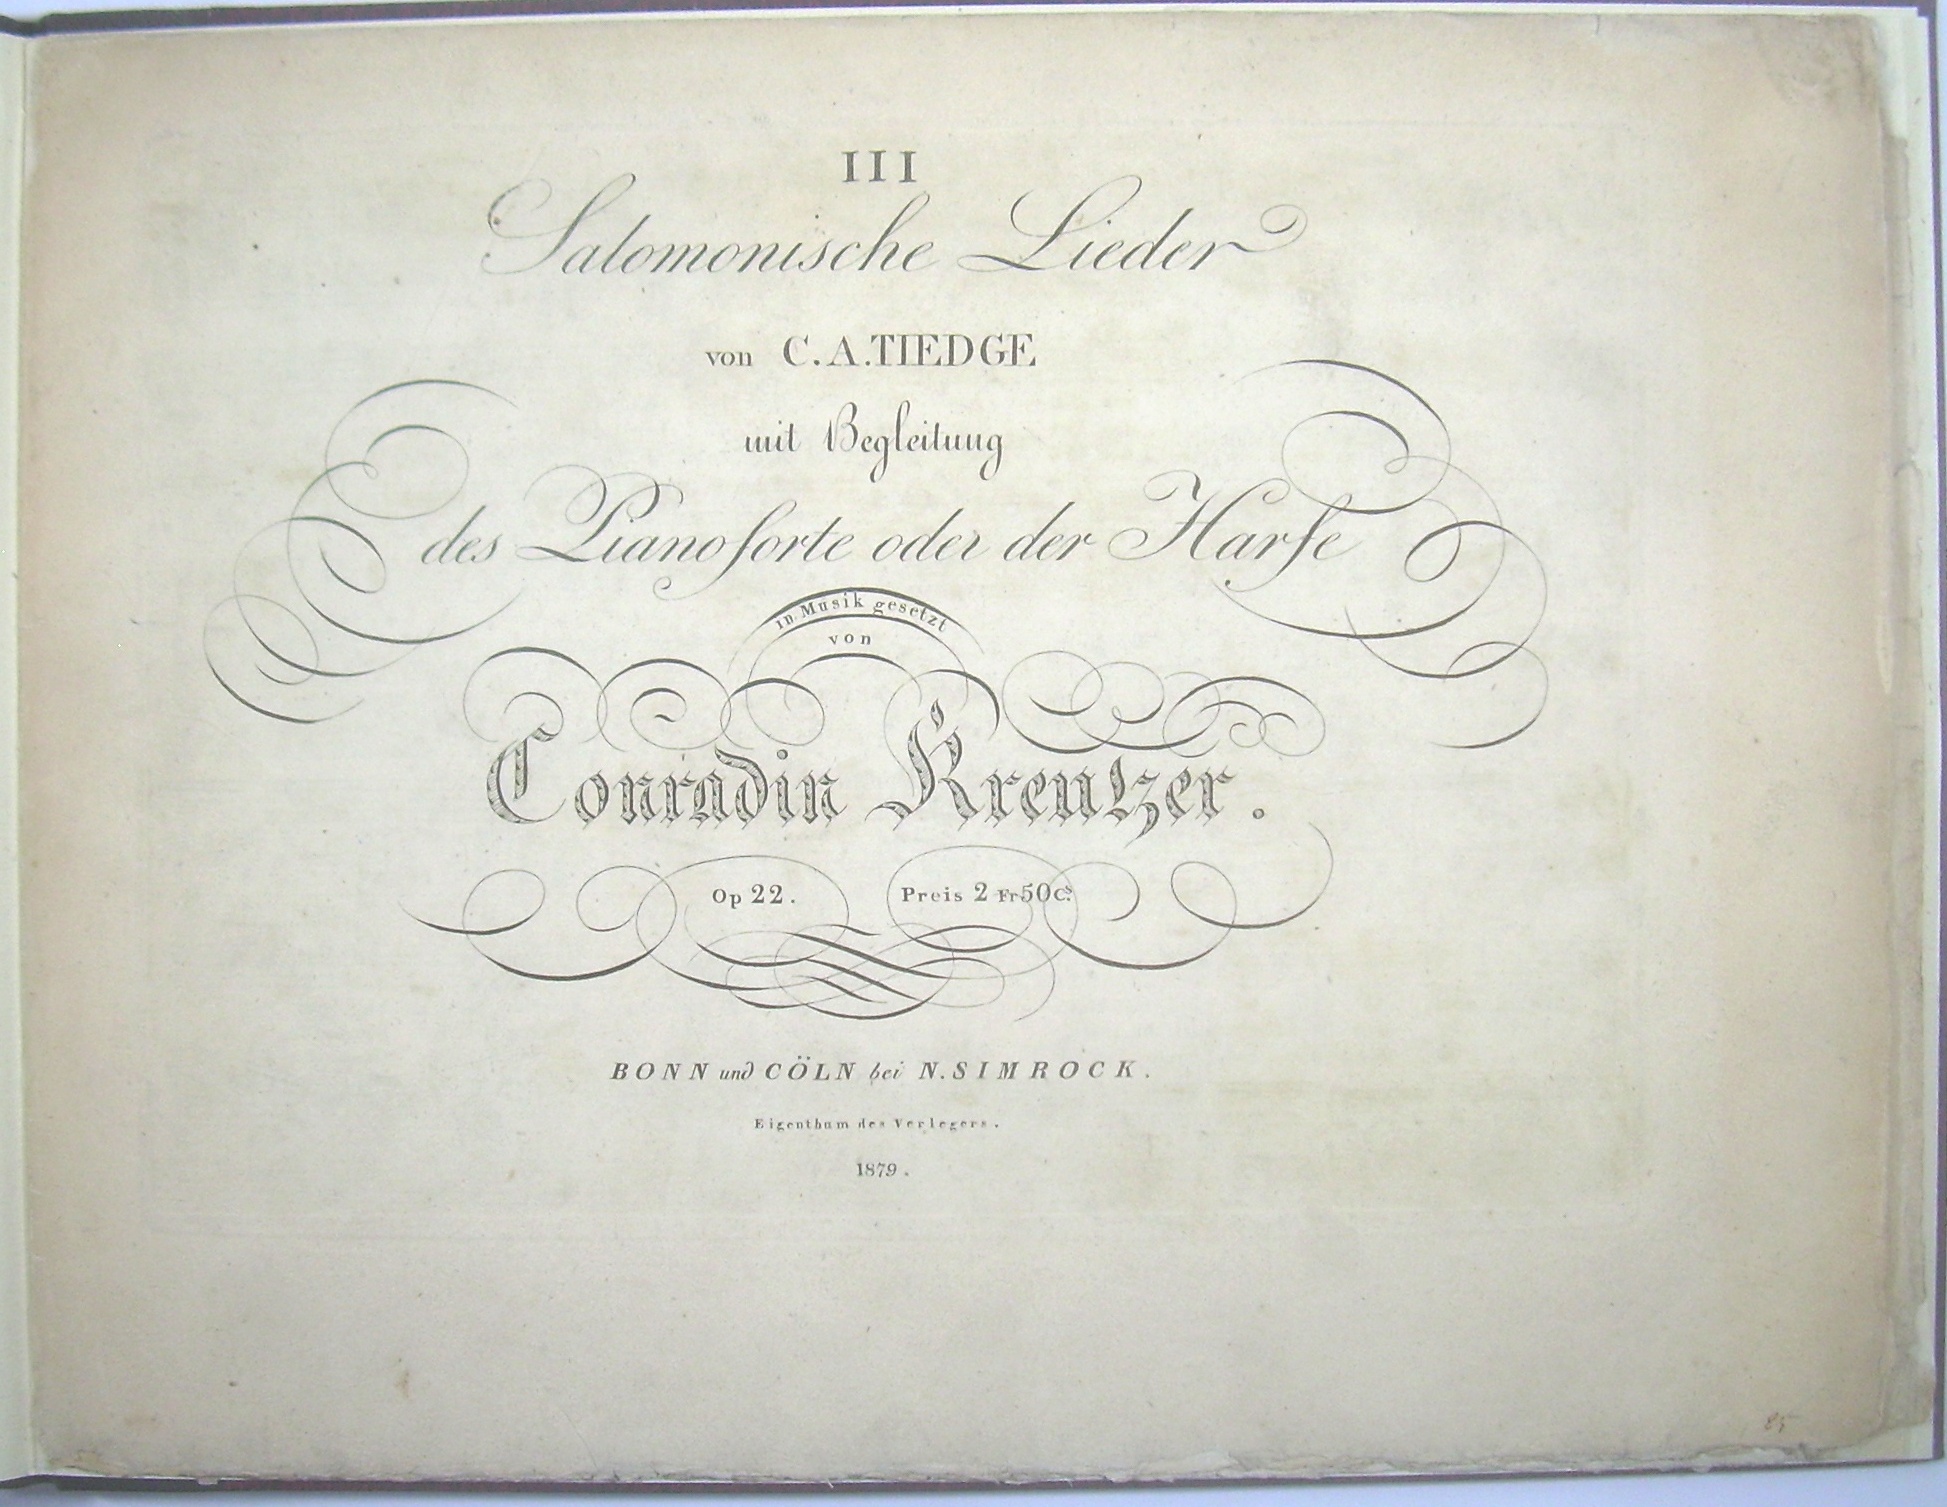 III
Salomonische Lieder
von C. A. TIEDGE
mit Begleitung
des Pianoforte oder der Harfe
in Musik gesetzt
von
Conradin Kreutzer.
Op 22. Preis 2 Fr 50 Cs.
BONN und CÖLN bei N. SIMROCK.
Eigenthum des Verlegers.
1879.
85